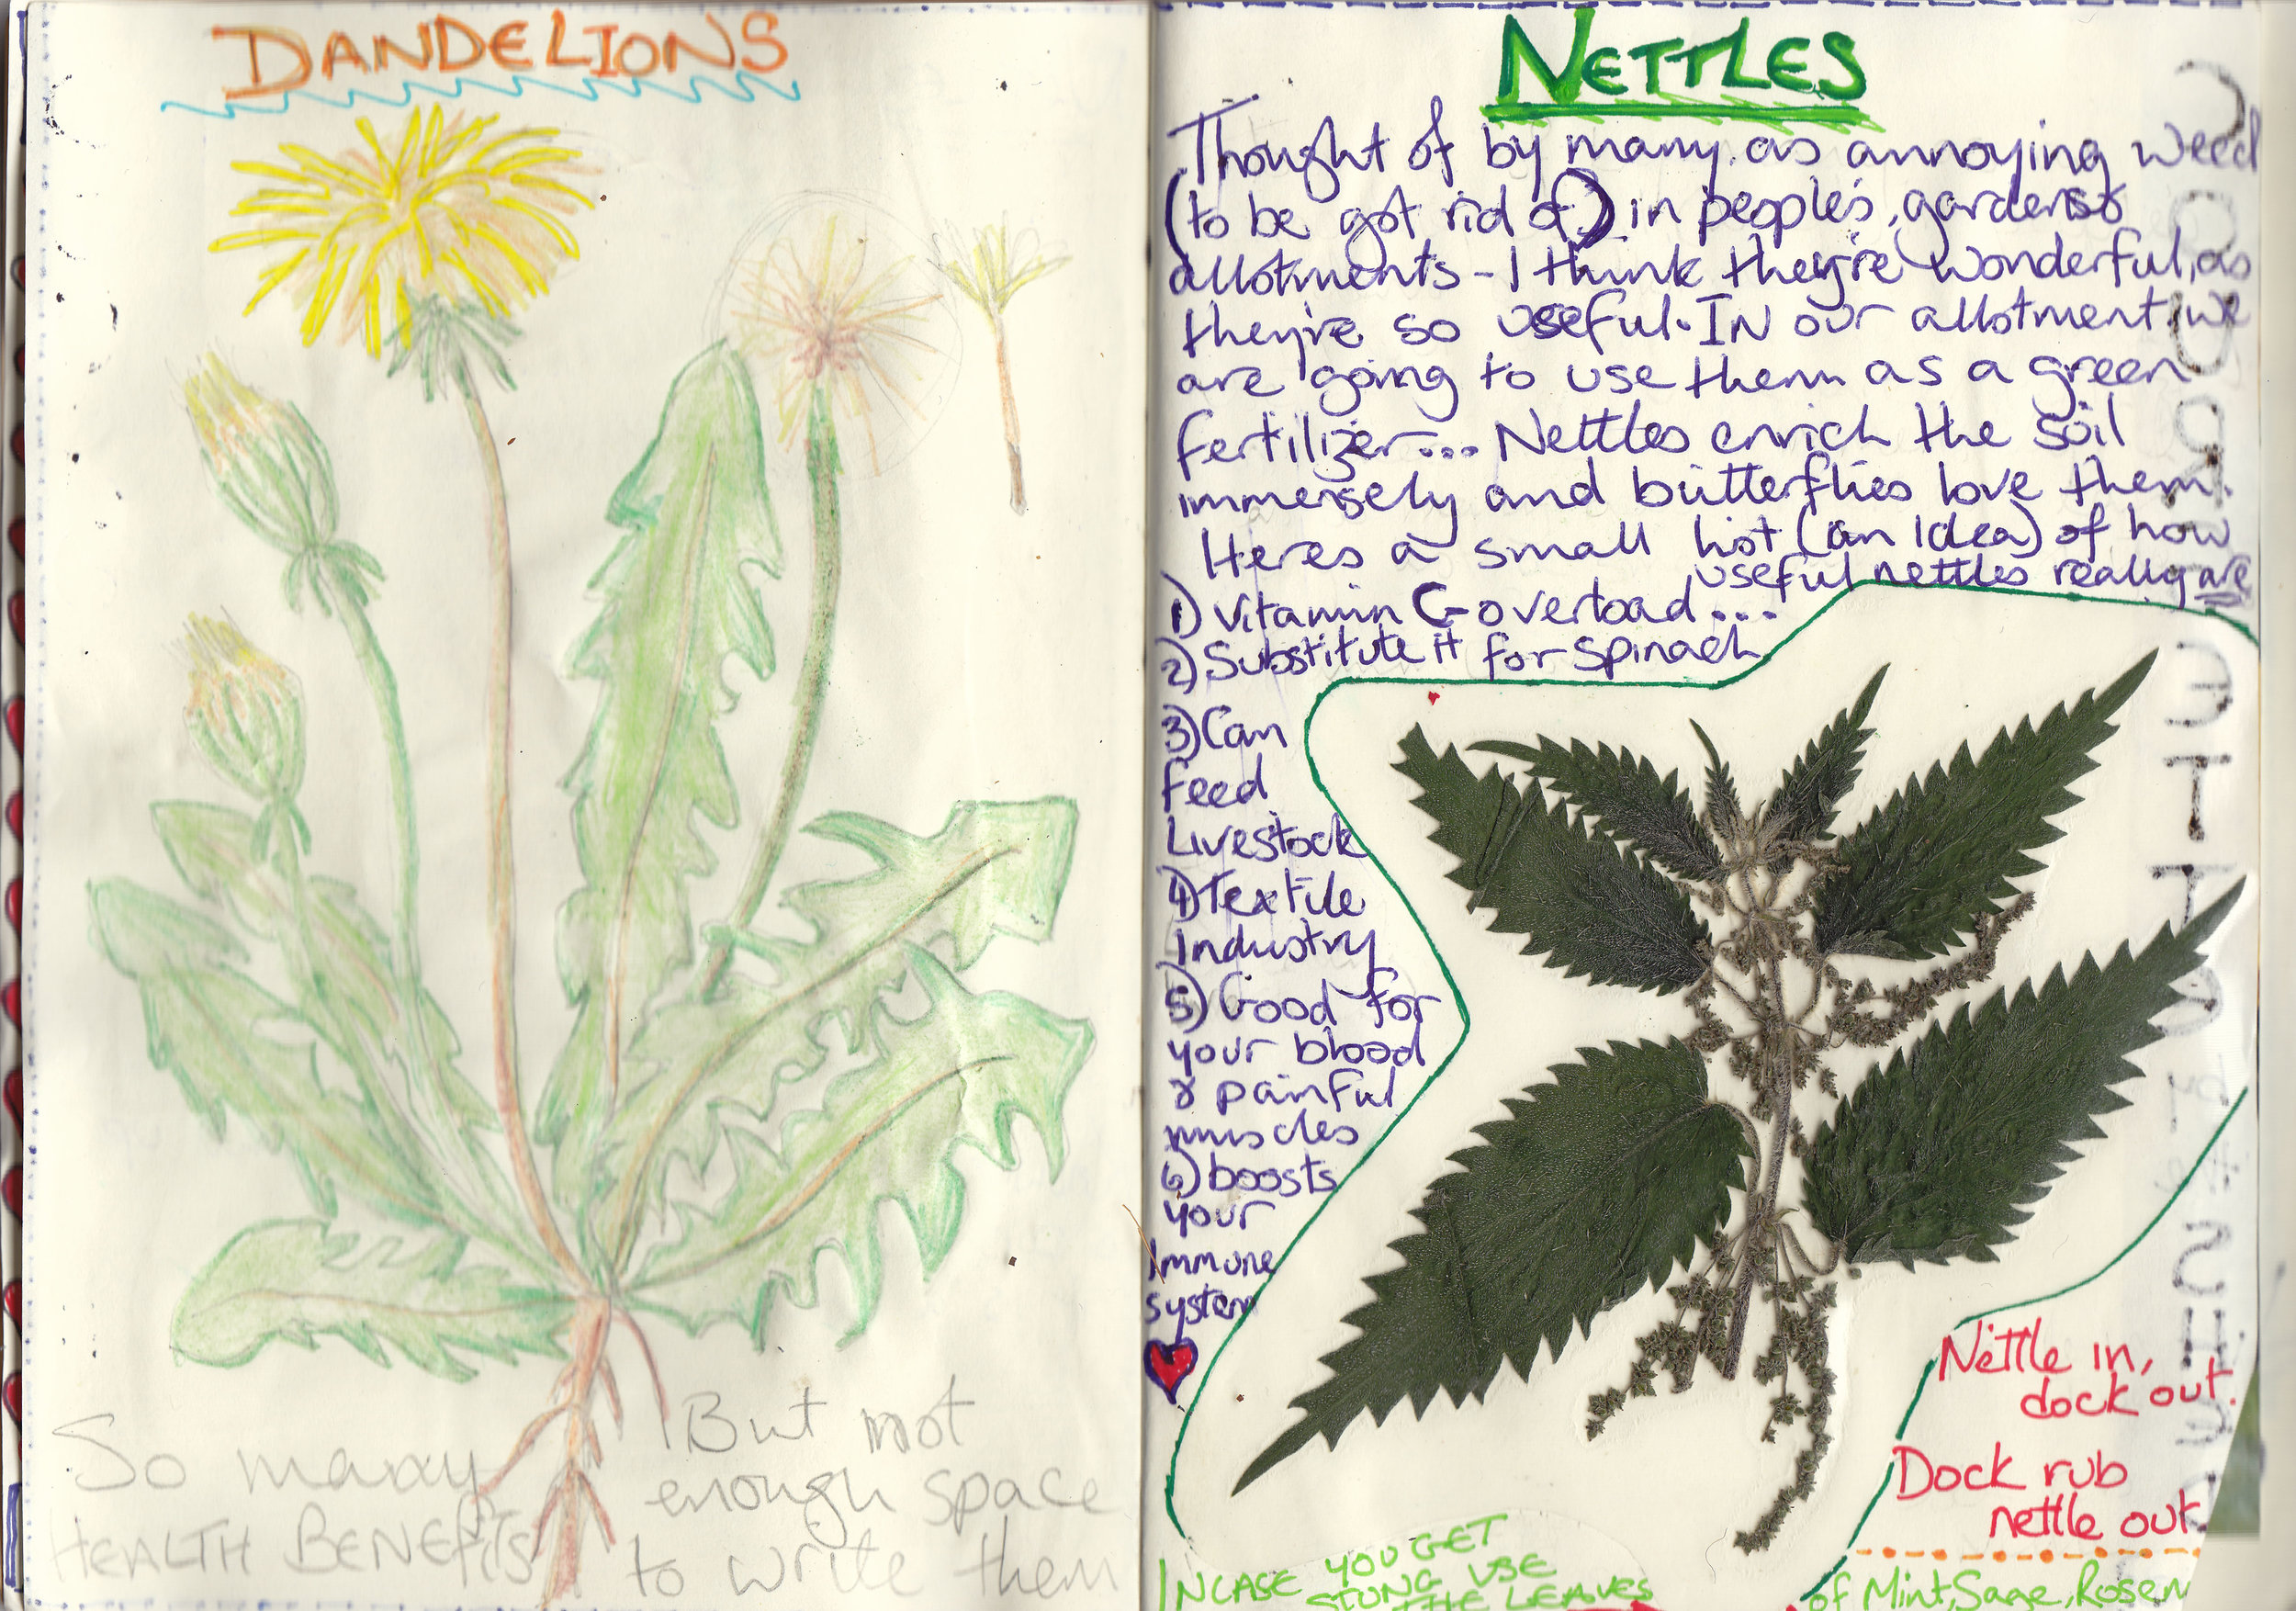 DANDELIONS
So many
HEALTH BENEFITS
But not
enough space
to write them
NETTLES
Thought of by many as annoying weed
(to be got rid of) in people's, gardens &
allotments - I think they're wonderful, as
they're so useful. IN our allotment we
are going to use them as a green
fertilizer... Nettles enrich the soil
immensely and butterflies love them.
Heres a small list (an Idea) of how
useful nettles really are
1) Vitamin C overload...
2) Substitute it for Spinach
3) Can
feed
Livestock
4) Textile
Industry
5) Good for
your blood
& painful
muscles
6) boosts
your
Immune
system
Nettle in,
dock out.
Dock rub
nettle out.
INCASE YOU GET
STUNG USE
THE LEAVES
of Mint, Sage, Rosem